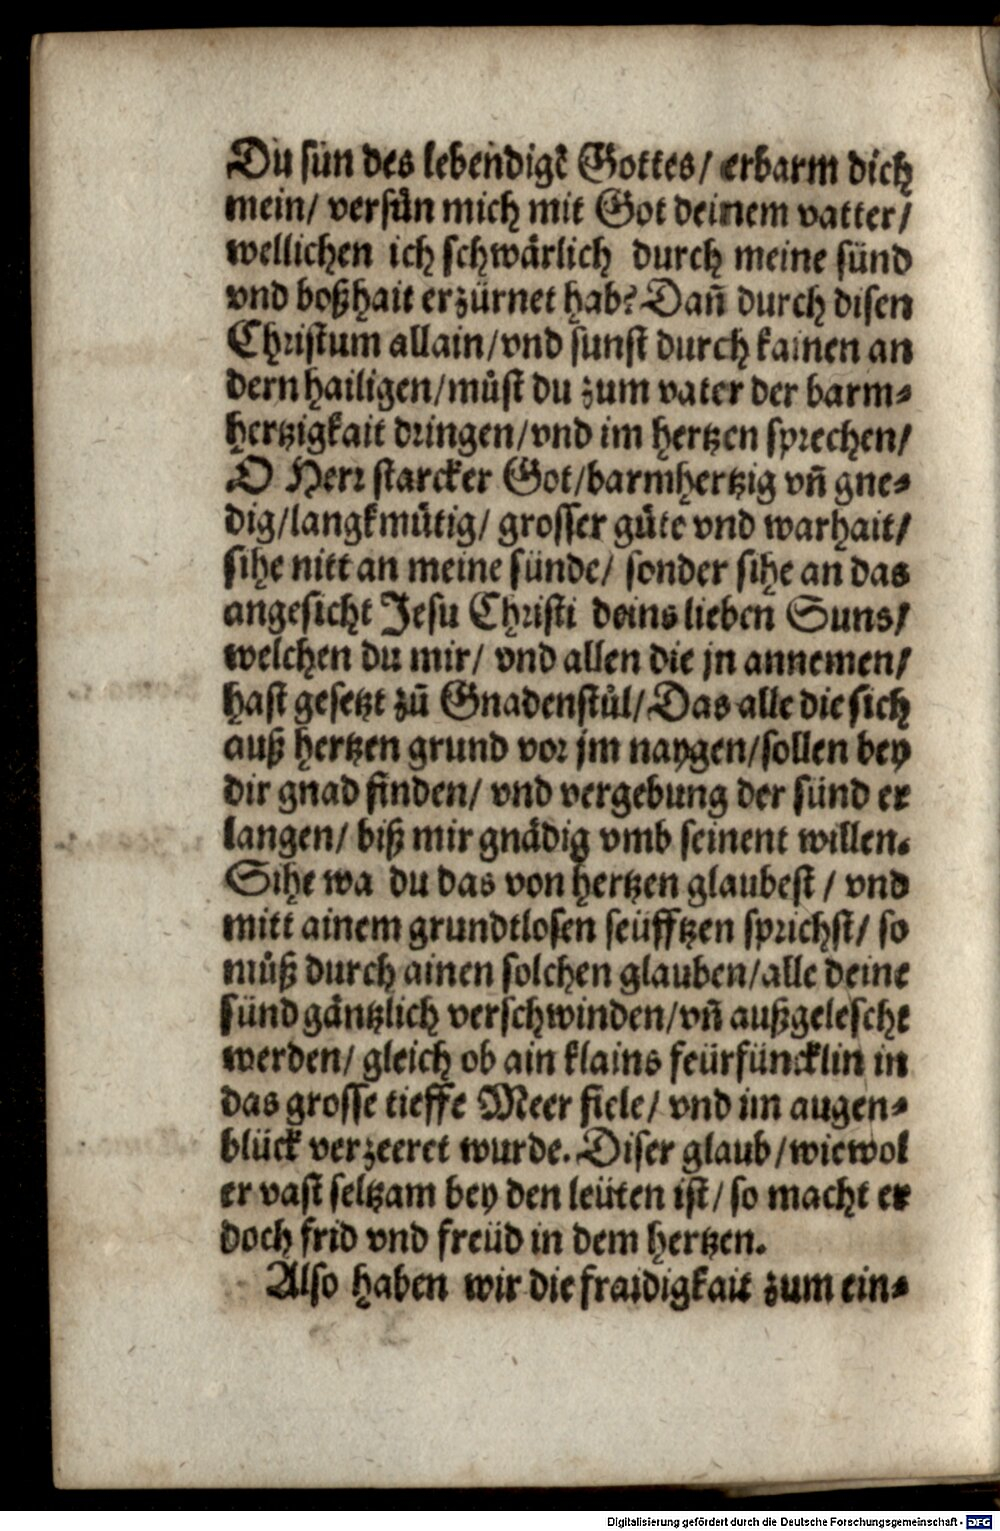 Du sün des lebendigẽ Gottes/ erbarm dich
mein/ versůn mich mit Got deinem vatter/
wellichen ich schwårlich durch meine sünd
vnd boßhait erzürnet hab? Dañ durch disen
Christum allain/vnd sunst durch kainen an
dern hailigen/můst du zum vater der barm⸗
hertzigkait dringen/vnd im hertzen sprechen/
O Herr starcker Got/barmhertzig vñ gne⸗
dig/langkmůtig/ grosser gůte vnd warhait/
sihe nitt an meine sünde/ sonder sihe an das
angesicht Jesu Christi deins lieben Suns/
welchen du mir/ vnd allen die jn annemen/
hast gesetzt zů Gnadenstůl/Das alle die sich
auß hertzen grund vor jm naygen/sollen bey
dir gnad finden/ vnd vergebung der sünd er
langen/ biß mir gnådig vmb seinent willen.
Sihe wa du das von hertzen glaubest / vnd
mitt ainem grundtlosen seüfftzen sprichst/ so
můß durch ainen solchen glauben/alle deine
sünd gåntzlich verschwinden/vñ außgelescht
werden/ gleich ob ain klains feürfüncklin in
das grosse tieffe Meer fiele/ vnd im augen⸗
blück verzeeret wurde. Diser glaub/wiewol
er vast seltzam bey den leüten ist/ so macht er
doch frid vnd freüd in dem hertzen.
Also haben wir die fraidigkait zum ein⸗
Digitalisierung gefördert durch die Deutsche Forschungsgemeinschaft - DFG